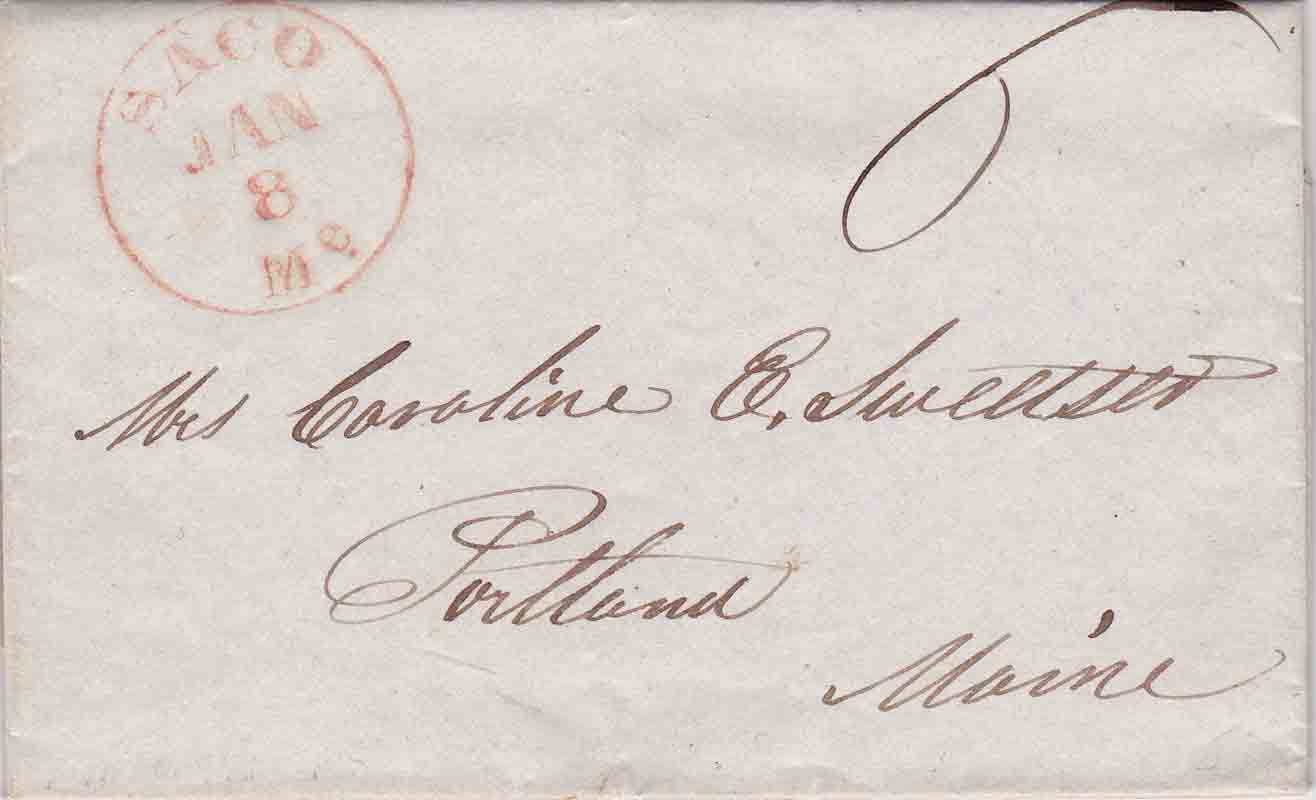 SACO
JAN
8
Me
6
Mrs Caroline E. Sweetser
Portland
Maine